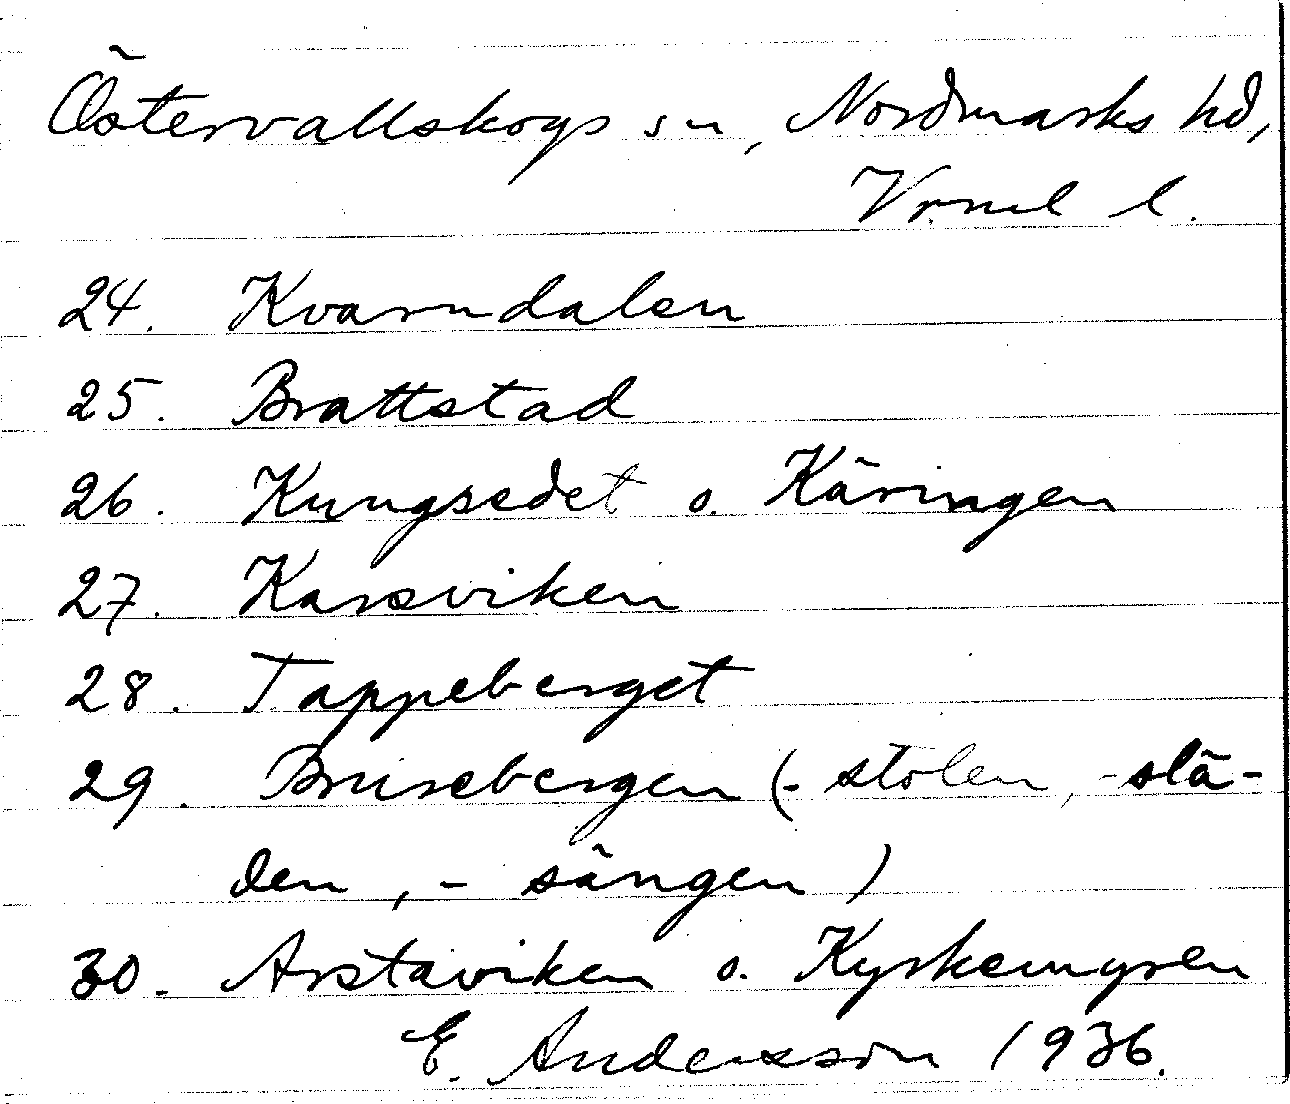 Östervallskogs sn, Nordmarks hd,
Vrml l.
24. Kvarndalen
25. Brattstad
26. Kungsedet o. Käringen
27. Karsviken
28. Tappeberget
29. Brusebergen (-stolen, -slä-
den, -sängen)
30. Arstaviken o. Kyrkemyren
E. Andersson 1936.